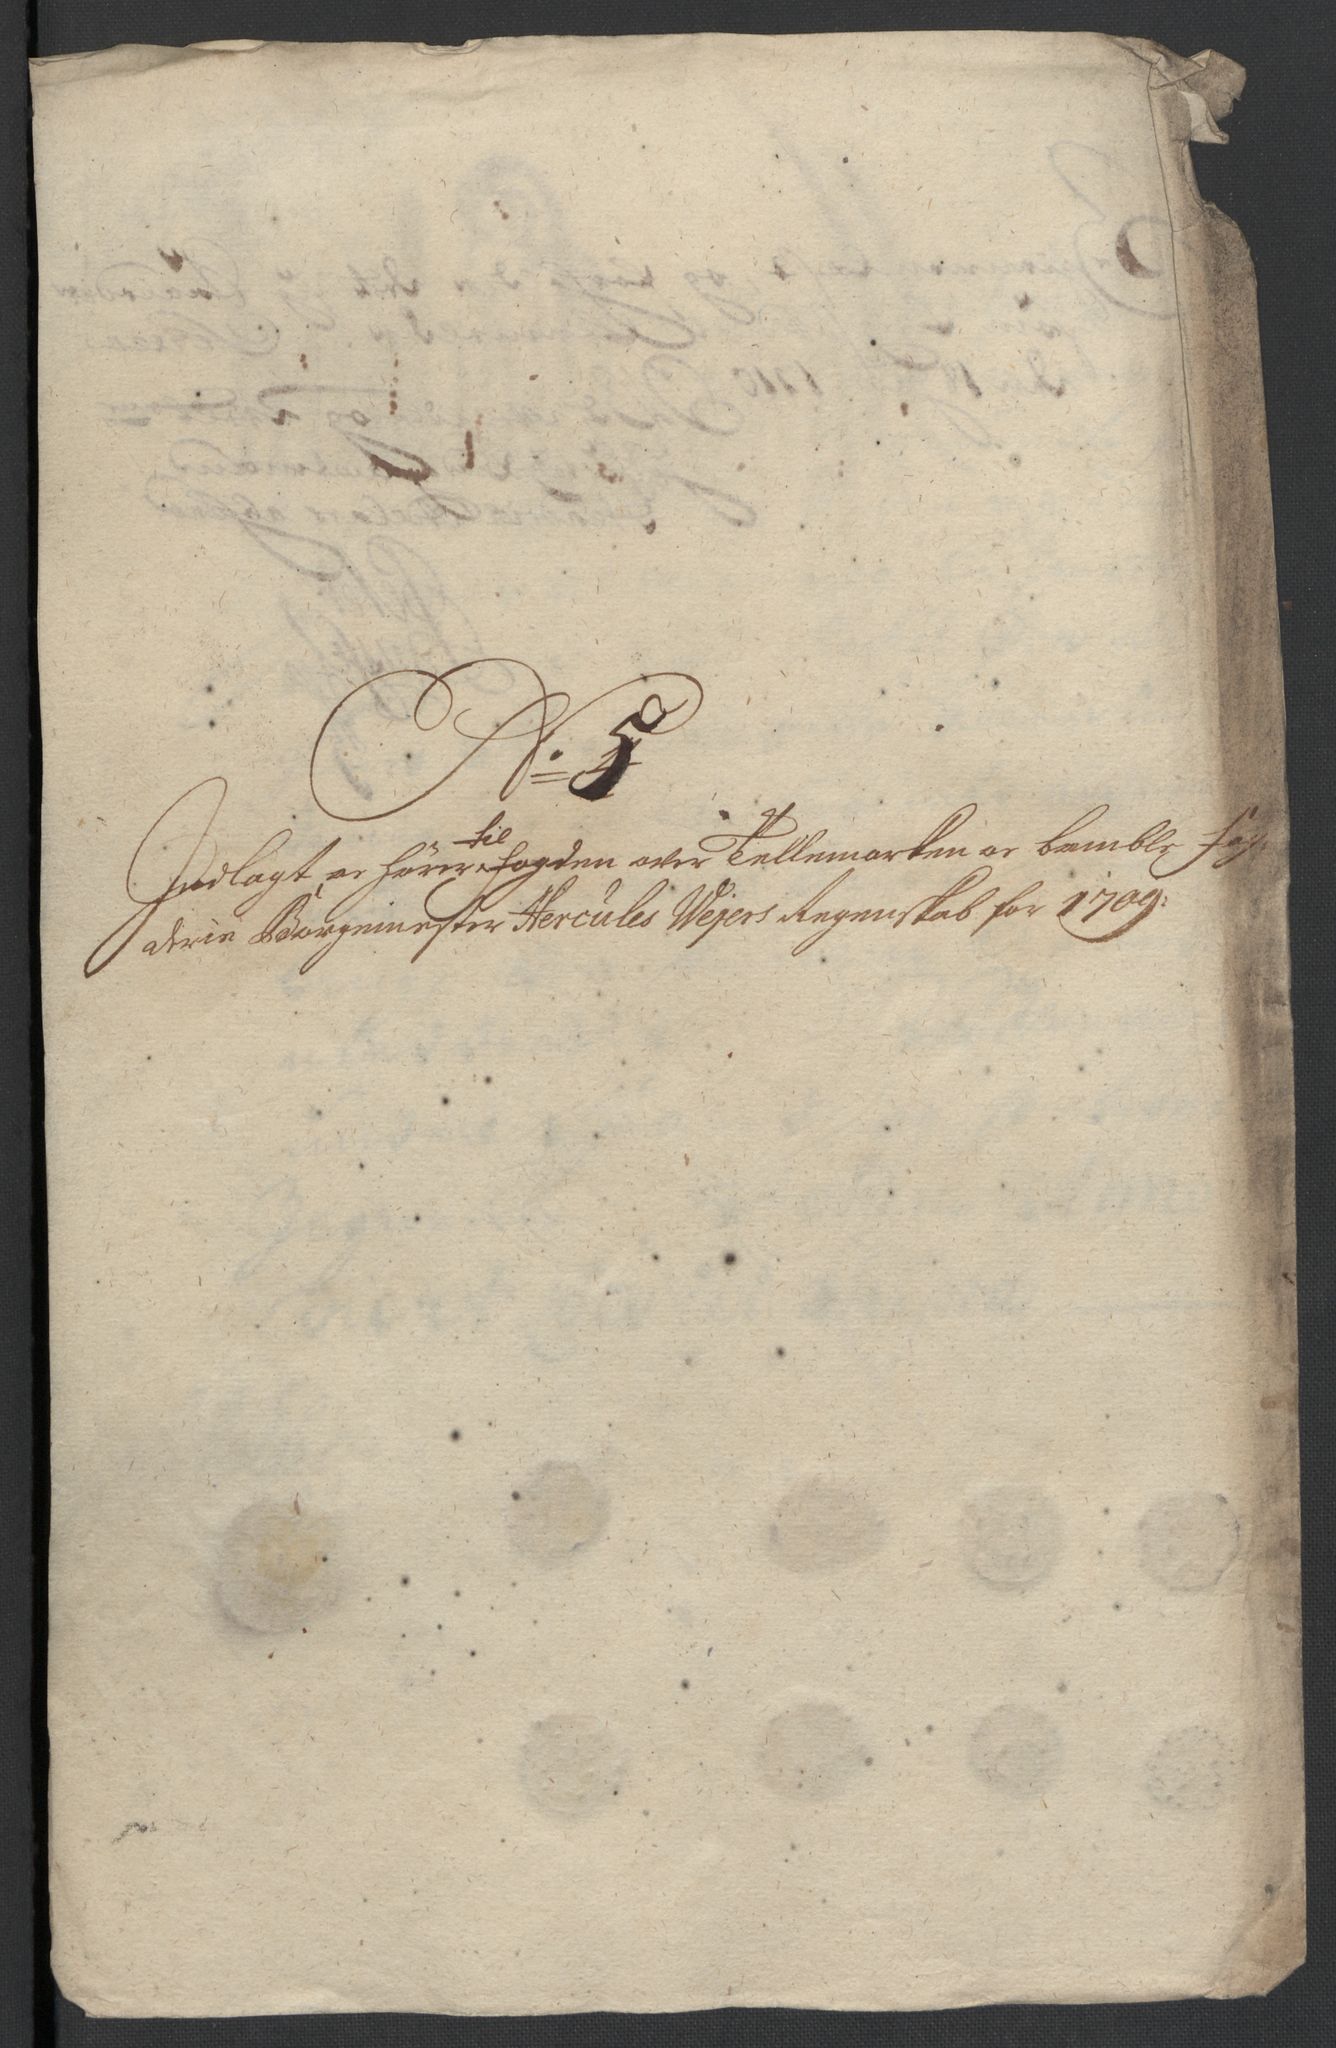 No: 5
Indlagt, oc hörer til fogden over Tellemarken oc bamble fog-
derie Borgemester Hercules Wejers Regenskab for 1709: